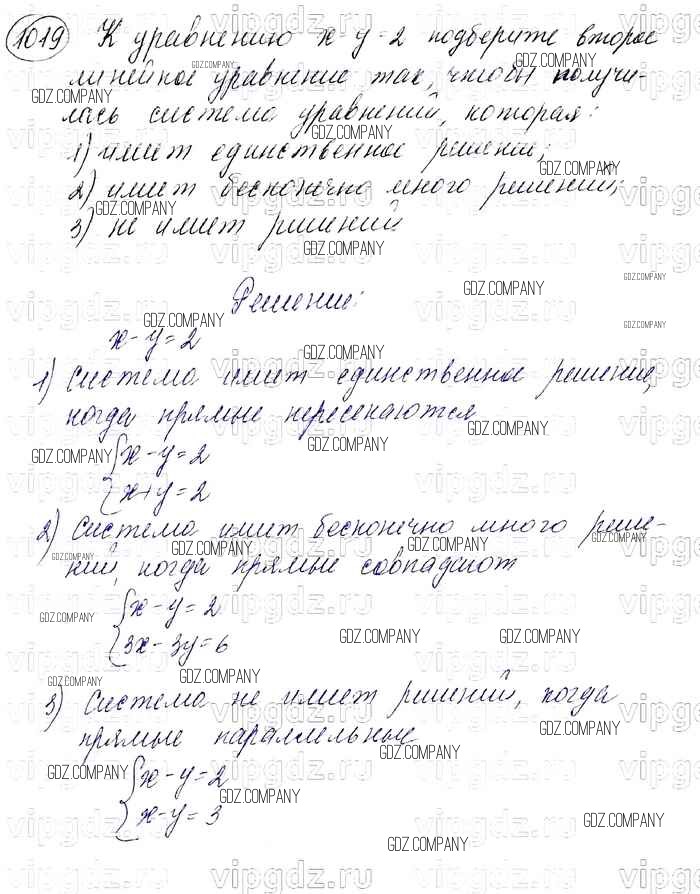 1019 К уравнению x-y=2 подберите второе
линейное уравнение так, чтобы получи-
лась система уравнений, которая:
1) имеет единственное решение;
2) имеет бесконечно много решений;
3) не имеет решений
Решение:
x-y=2
1) Система имеет единственное решение,
когда прямые пересекаются
{x-y=2
{x+y=2
2) Система имеет бесконечно много реше-
ний, когда прямые совпадают
{x-y=2
{3x-3y=6
3) Система не имеет решений, когда
прямые параллельные
{x-y=2
{x-y=3
GDZ.COMPANY
vipgdz.ru